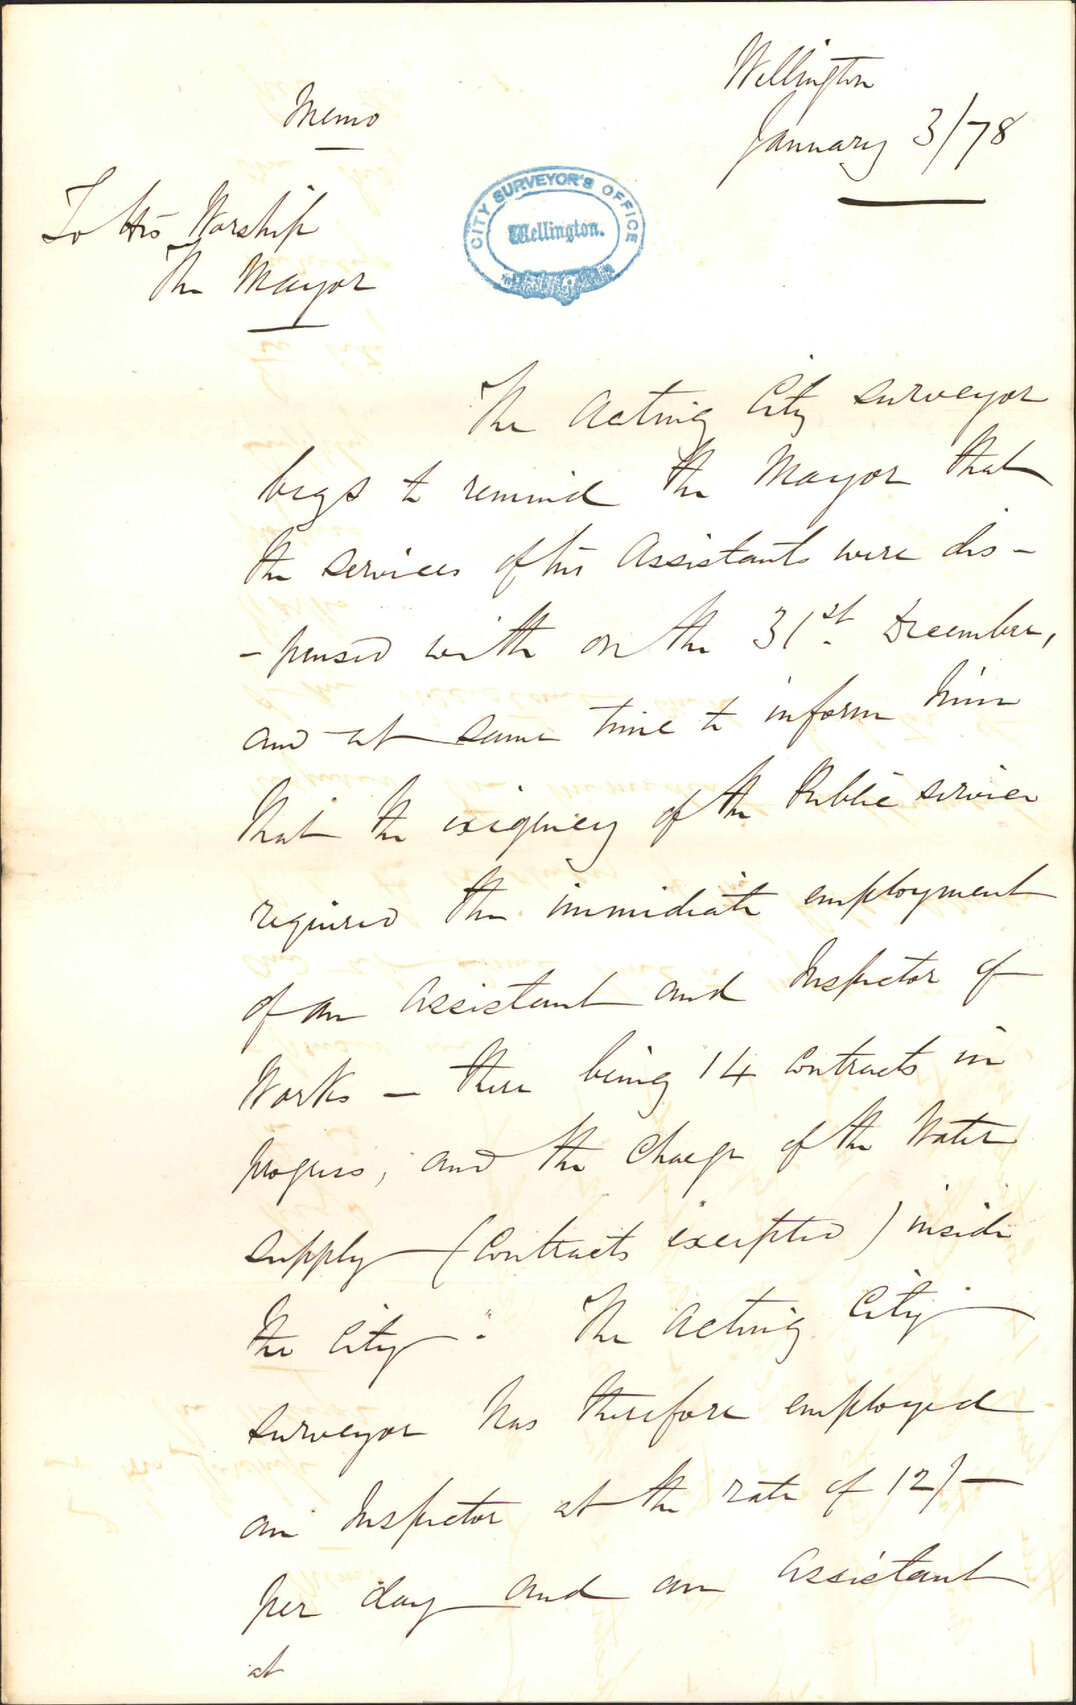 Wellington
January 3/78
Memo
To His Worship
The Mayor
CITY SURVEYOR'S OFFICE
Wellington.
The Acting City Surveyor
begs to remind the Mayor that
the services of his Assistants were dis-
-pensed with on the 31st. December,
and at same time to inform him
that the exigency of the Public service
required the immediate employment
of an Assistant and Inspector of
Works – there being 14 contracts in
progress, and the charge of the Water
supply (contracts excepted) inside
the City. The Acting City
Surveyor has therefore employed
an Inspector at the rate of 12/-
per day and an Assistant
at